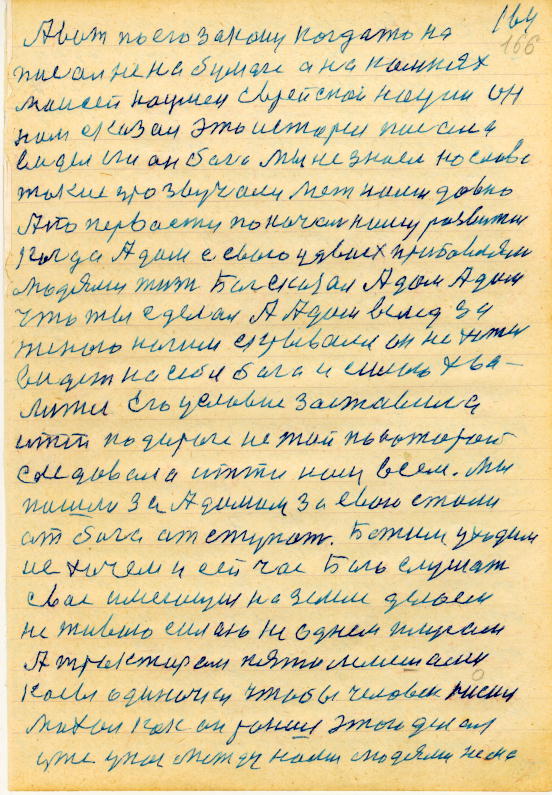 164
166
А вот по его закону когдато на
писал не на бумаге а на камнях
Маисей научен еврейской нации он
нам сказал это история писана
видел ли он бога мы не знаем но слова
такие прозвучали меж нами давно
А то первасти по начальному развитии
когда Адам с своею двоех прибавляли
людями жит Бог сказал Адам Адам
что ты сделал А Адам вслед за
женою ночим скрывали он не хотел
видет на себе бога и силою хва-
литис Его условие заставила
итти по дороге не той по которой
следовала итти нам всем. Мы
пошли за Адамом за ево стали
от бога отступат. Бежим уходим
не хочем и сей час Бога слушат
свое имеющия на земле делаем
не живою силою не однем плугом
А трактарам пятю лемешами
коева одиночки чтобы человек
махал как он ранш этого делал
уже упал между нами людями